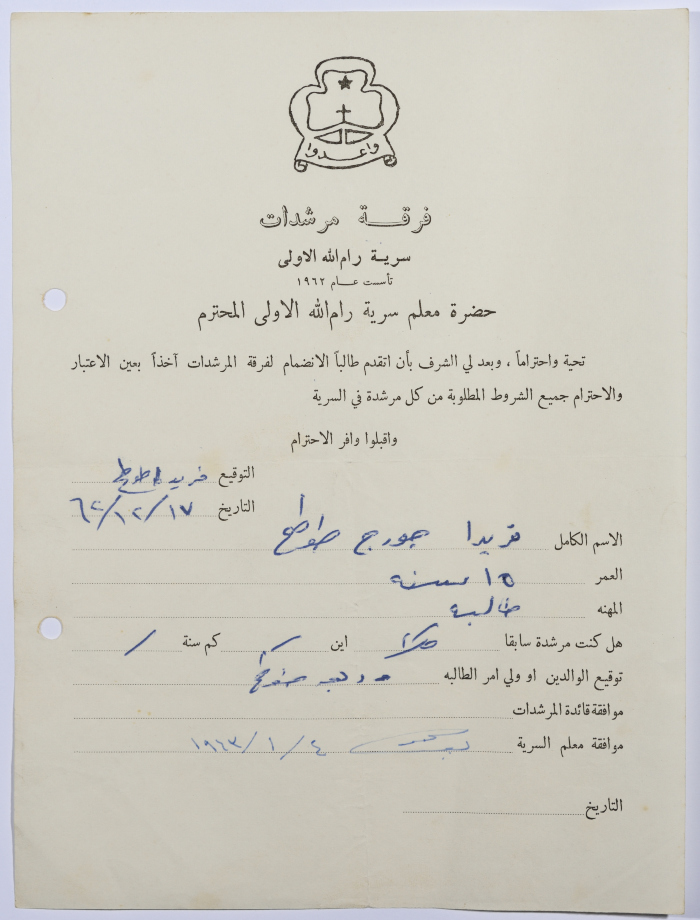 واعدوا
فرقة مرشدات
سرية رام الله الاولى
تأسست عام ١٩٦٢
حضرة معلم سرية رام الله الاولى المحترم
تحية واحتراماً ، وبعد لي الشرف بأن اتقدم طالباً الانضمام لفرقة المرشدات آخذاً بعين الاعتبار
والاحترام جميع الشروط المطلوبة من كل مرشدة في السرية
واقبلوا وافر الاحترام
التوقيع فريدا طوطح
التاريخ ٦٢/١٢/١٧
الاسم الكامل فريدا جورج طوطح
العمر ١٥ سنة
المهنه طالبة
هل كنت مرشدة سابقا كلا اين / كم سنة /
توقيع الوالدين او ولي امر الطالبه
موافقة قائدة المرشدات
موافقة معلم السرية ١٩٦٣/١/٤
التاريخ